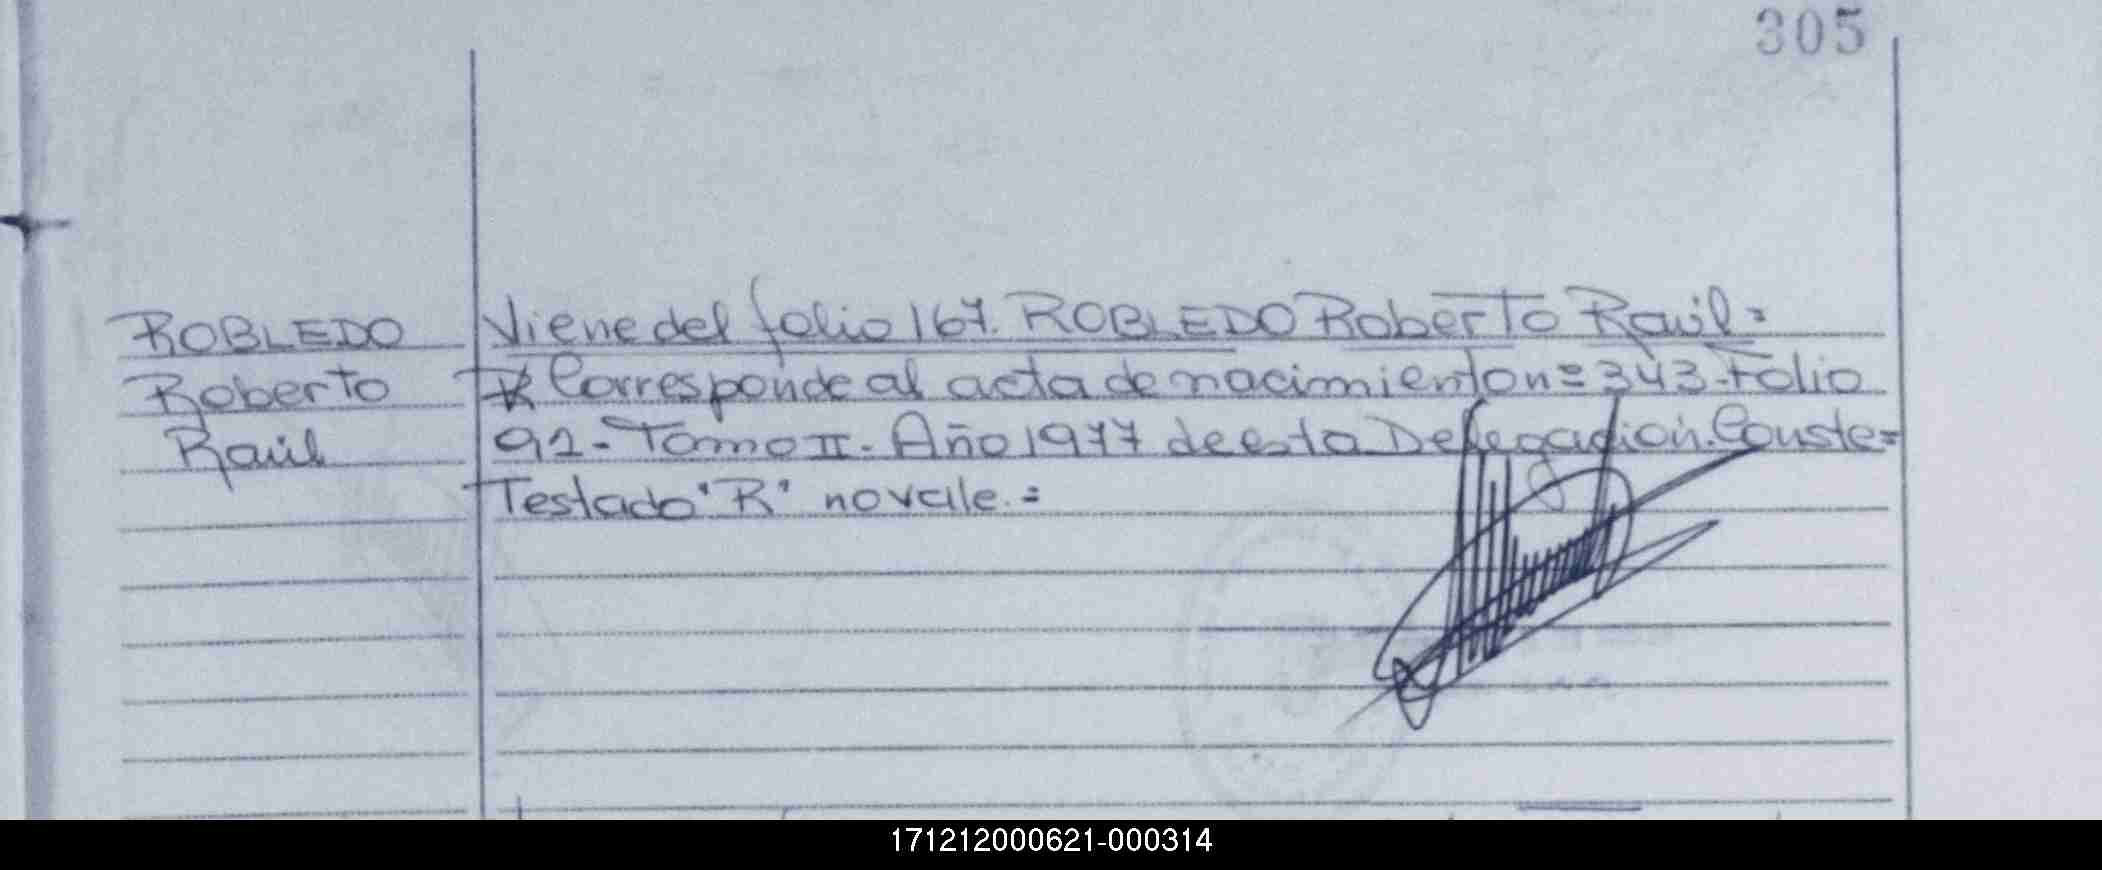 305
ROBLEDO
Roberto
Raúl
Viene del folio 167. ROBLEDO Roberto Raúl=
R Corresponde al acta de nacimiento nº 343-Folio
92- Tomo II- Año 1977 de esta Delegación. Conste=
Testado "R" no vale.=
171212000621-000314